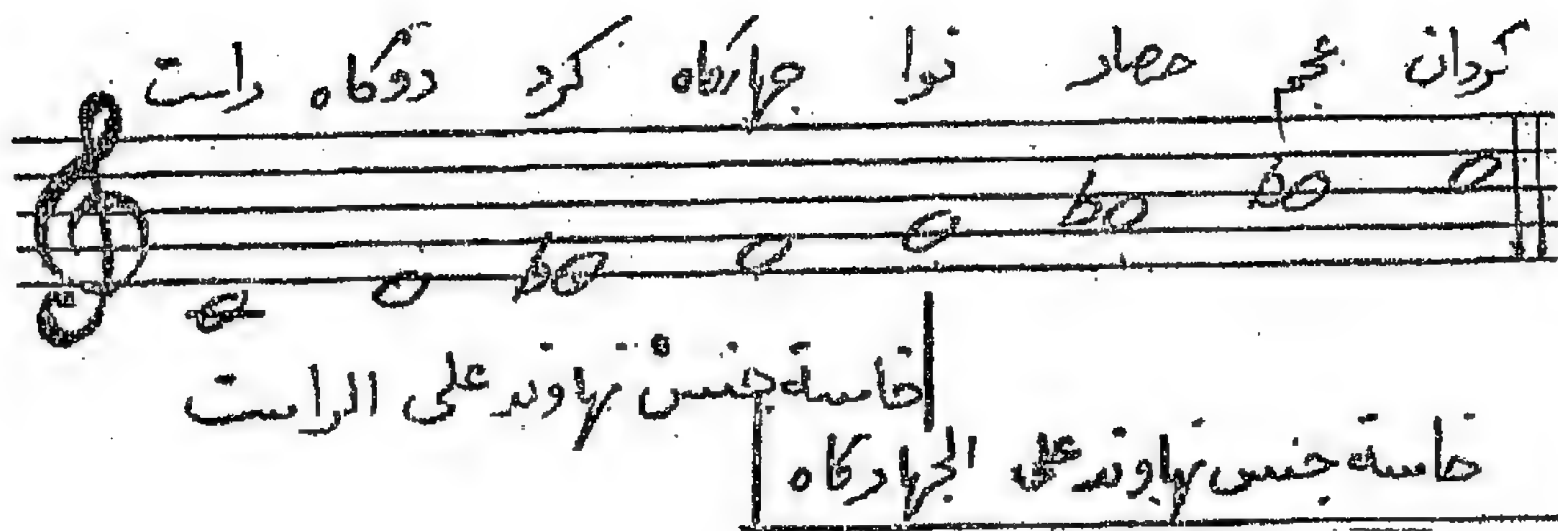 كردان عجم حصار نوا جهاركاه كرد دوكاه راست
خامسة جنس نهاوند على الراست
خامسة جنس نهاوند على الجهاركاه